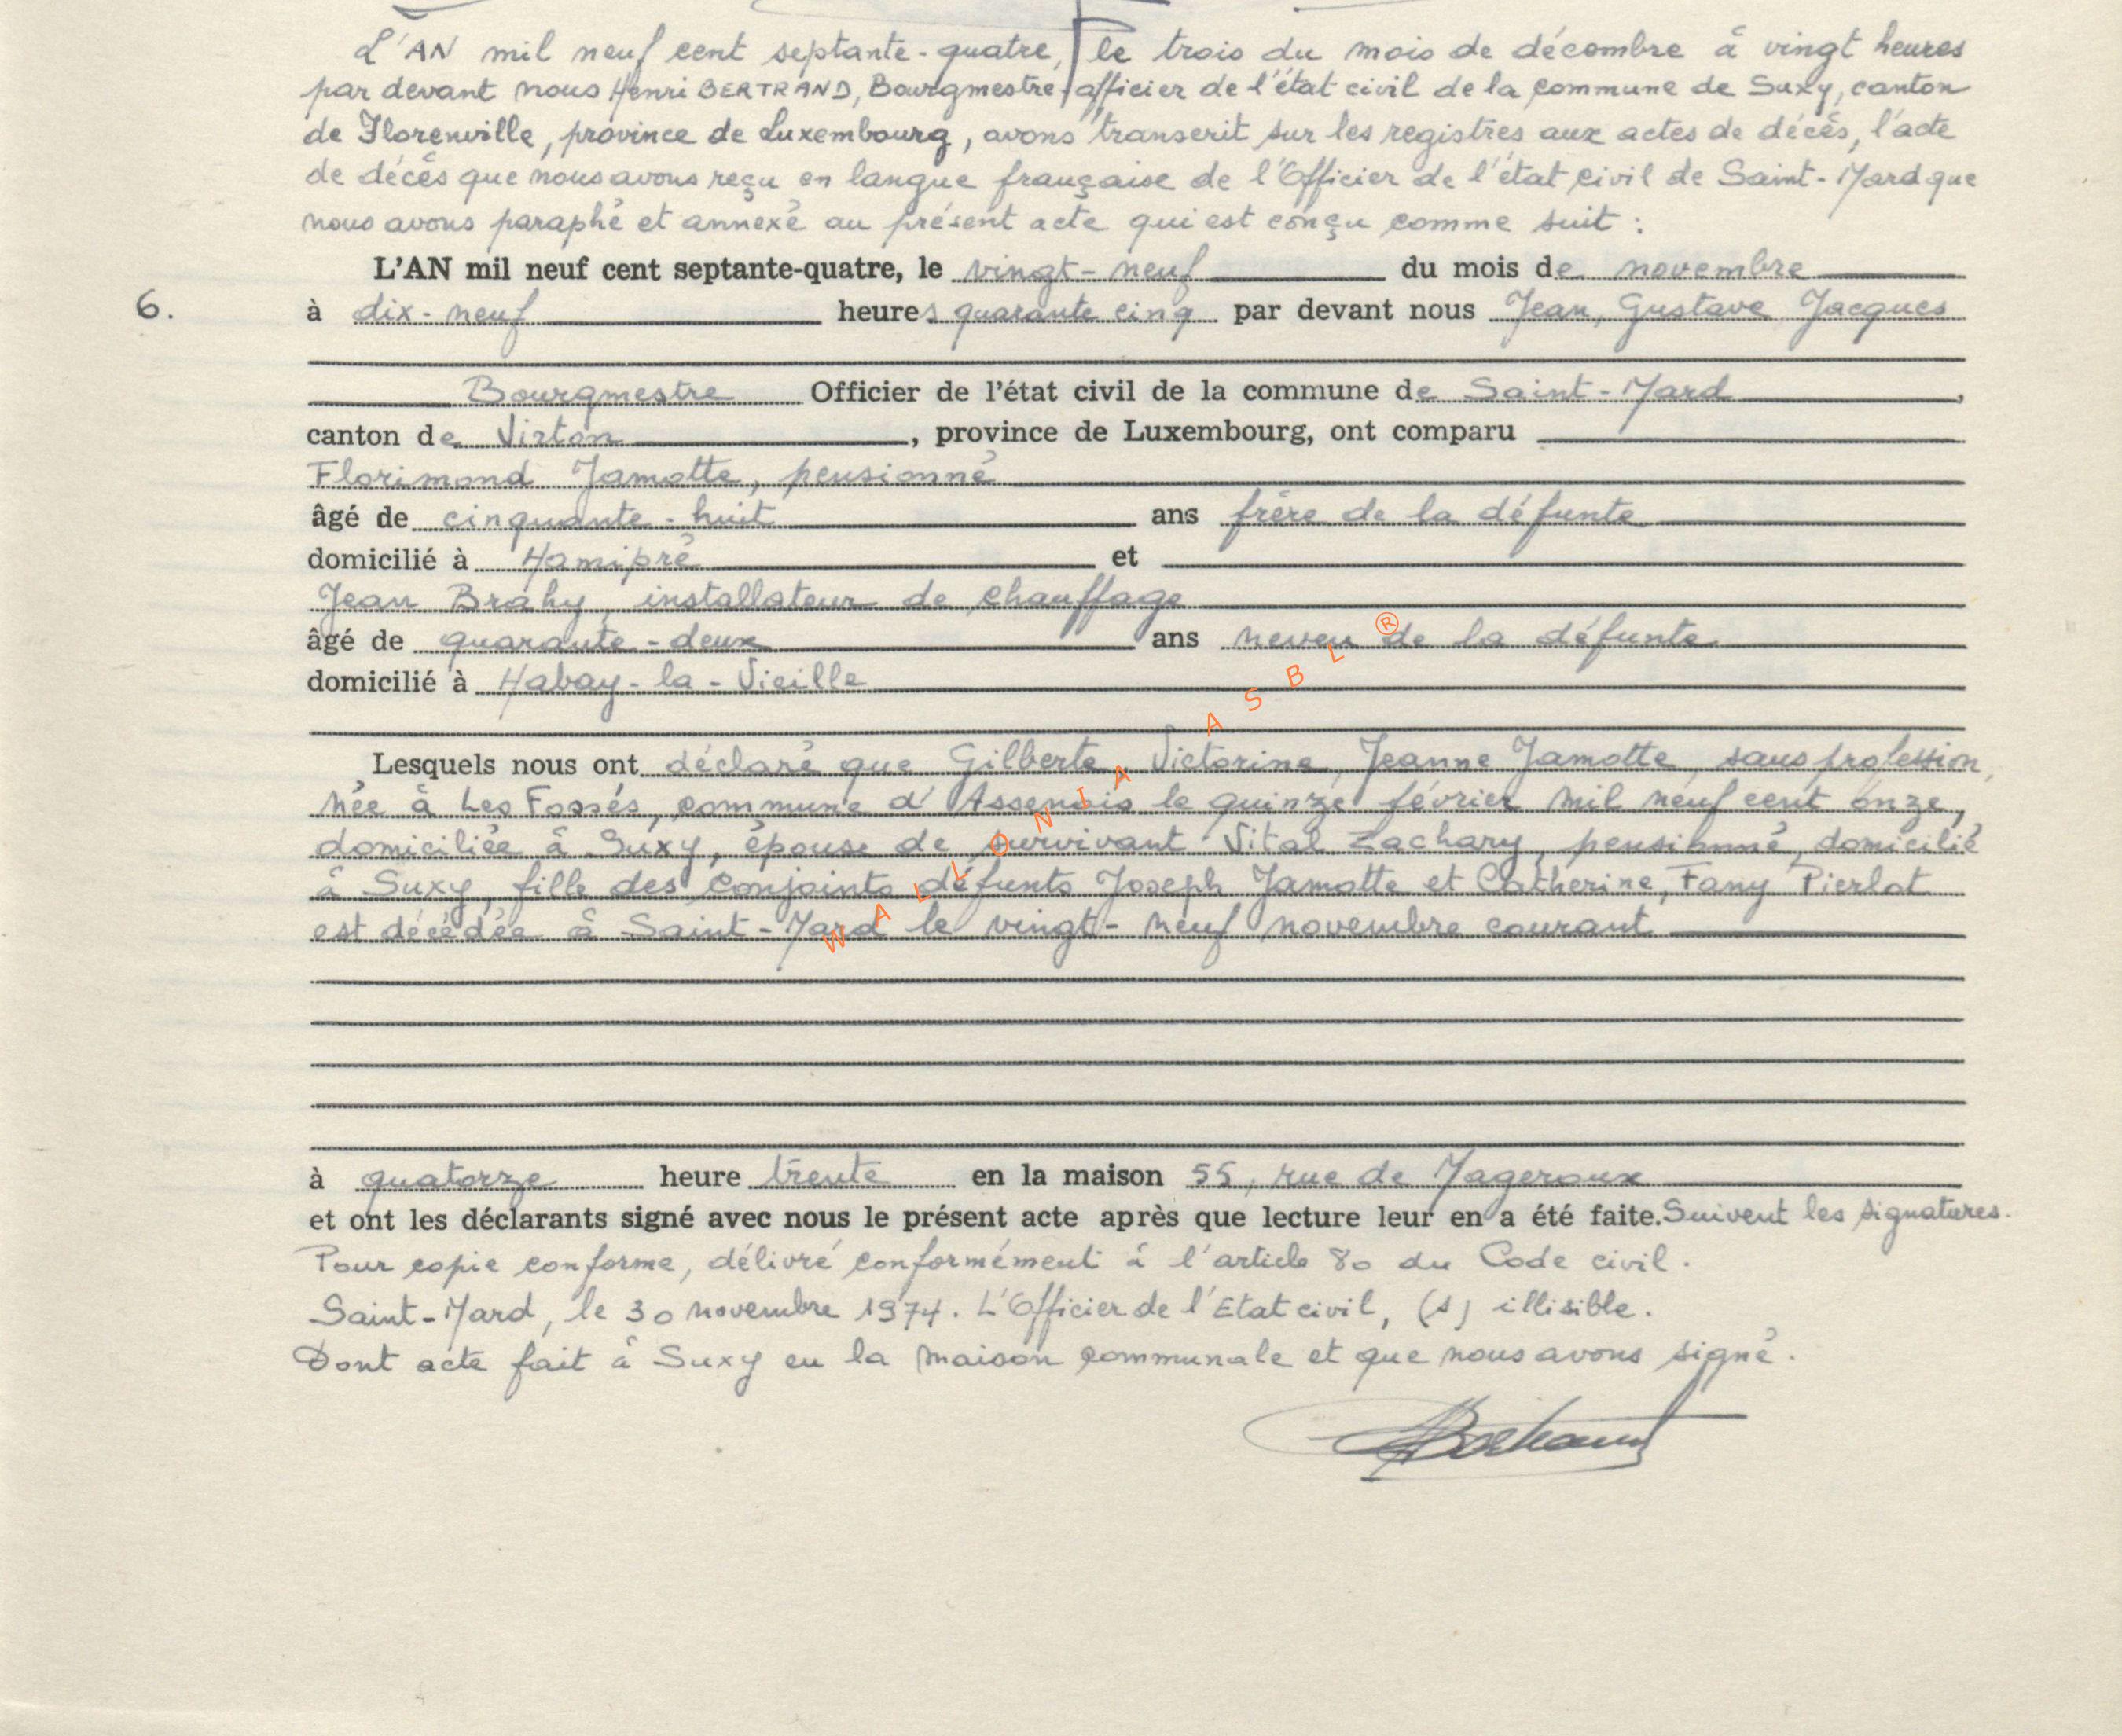 L'AN mil neuf cent septante-quatre, le trois du mois de décembre à vingt heures
par devant nous Henri BERTRAND, Bourgmestre officier de l'état civil de la commune de Suxy, canton
de Florenville, province de Luxembourg, avons transcrit sur les registres aux actes de décès, l'acte
de décès que nous avons reçu en langue française de l'Officier de l'état civil de Saint-Mard que
nous avons paraphé et annexé au présent acte qui est conçu comme suit :
L'AN mil neuf cent septante-quatre, le vingt-neuf du mois de novembre
6. à dix-neuf heures quarante cinq par devant nous Jean, Gustave Jacques
Bourgmestre Officier de l'état civil de la commune de Saint-Mard,
canton de Virton, province de Luxembourg, ont comparu
Florimond Jamotte, pensionné
âgé de cinquante-huit ans frère de la défunte
domicilié à Hamipré et
Jean Brahy, installateur de chauffage
âgé de quarante-deux ans neveu de la défunte
domicilié à Habay-la-Vieille
Lesquels nous ont déclaré que Gilberte, Victorine, Jeanne Jamotte, sans profession,
née à Les Fossés, commune d'Assenois le quinze février mil neuf cent onze,
domiciliée à Suxy, épouse de survivant Vital Zachary, pensionné, domicilié
à Suxy, fille des conjoints défunts Joseph Jamotte et Catherine, Fany Pierlot
est décédée à Saint-Mard le vingt-neuf novembre courant
à quatorze heure trente en la maison 55, rue de Mageroux
et ont les déclarants signé avec nous le présent acte après que lecture leur en a été faite. Suivent les signatures.
Pour copie conforme, délivré conformément à l'article 80 du Code civil.
Saint-Mard, le 30 novembre 1974. L'Officier de l'Etat civil, (s) illisible.
Dont acte fait à Suxy en la maison communale et que nous avons signé.
HBertrand
WALLONIA ASBL ®